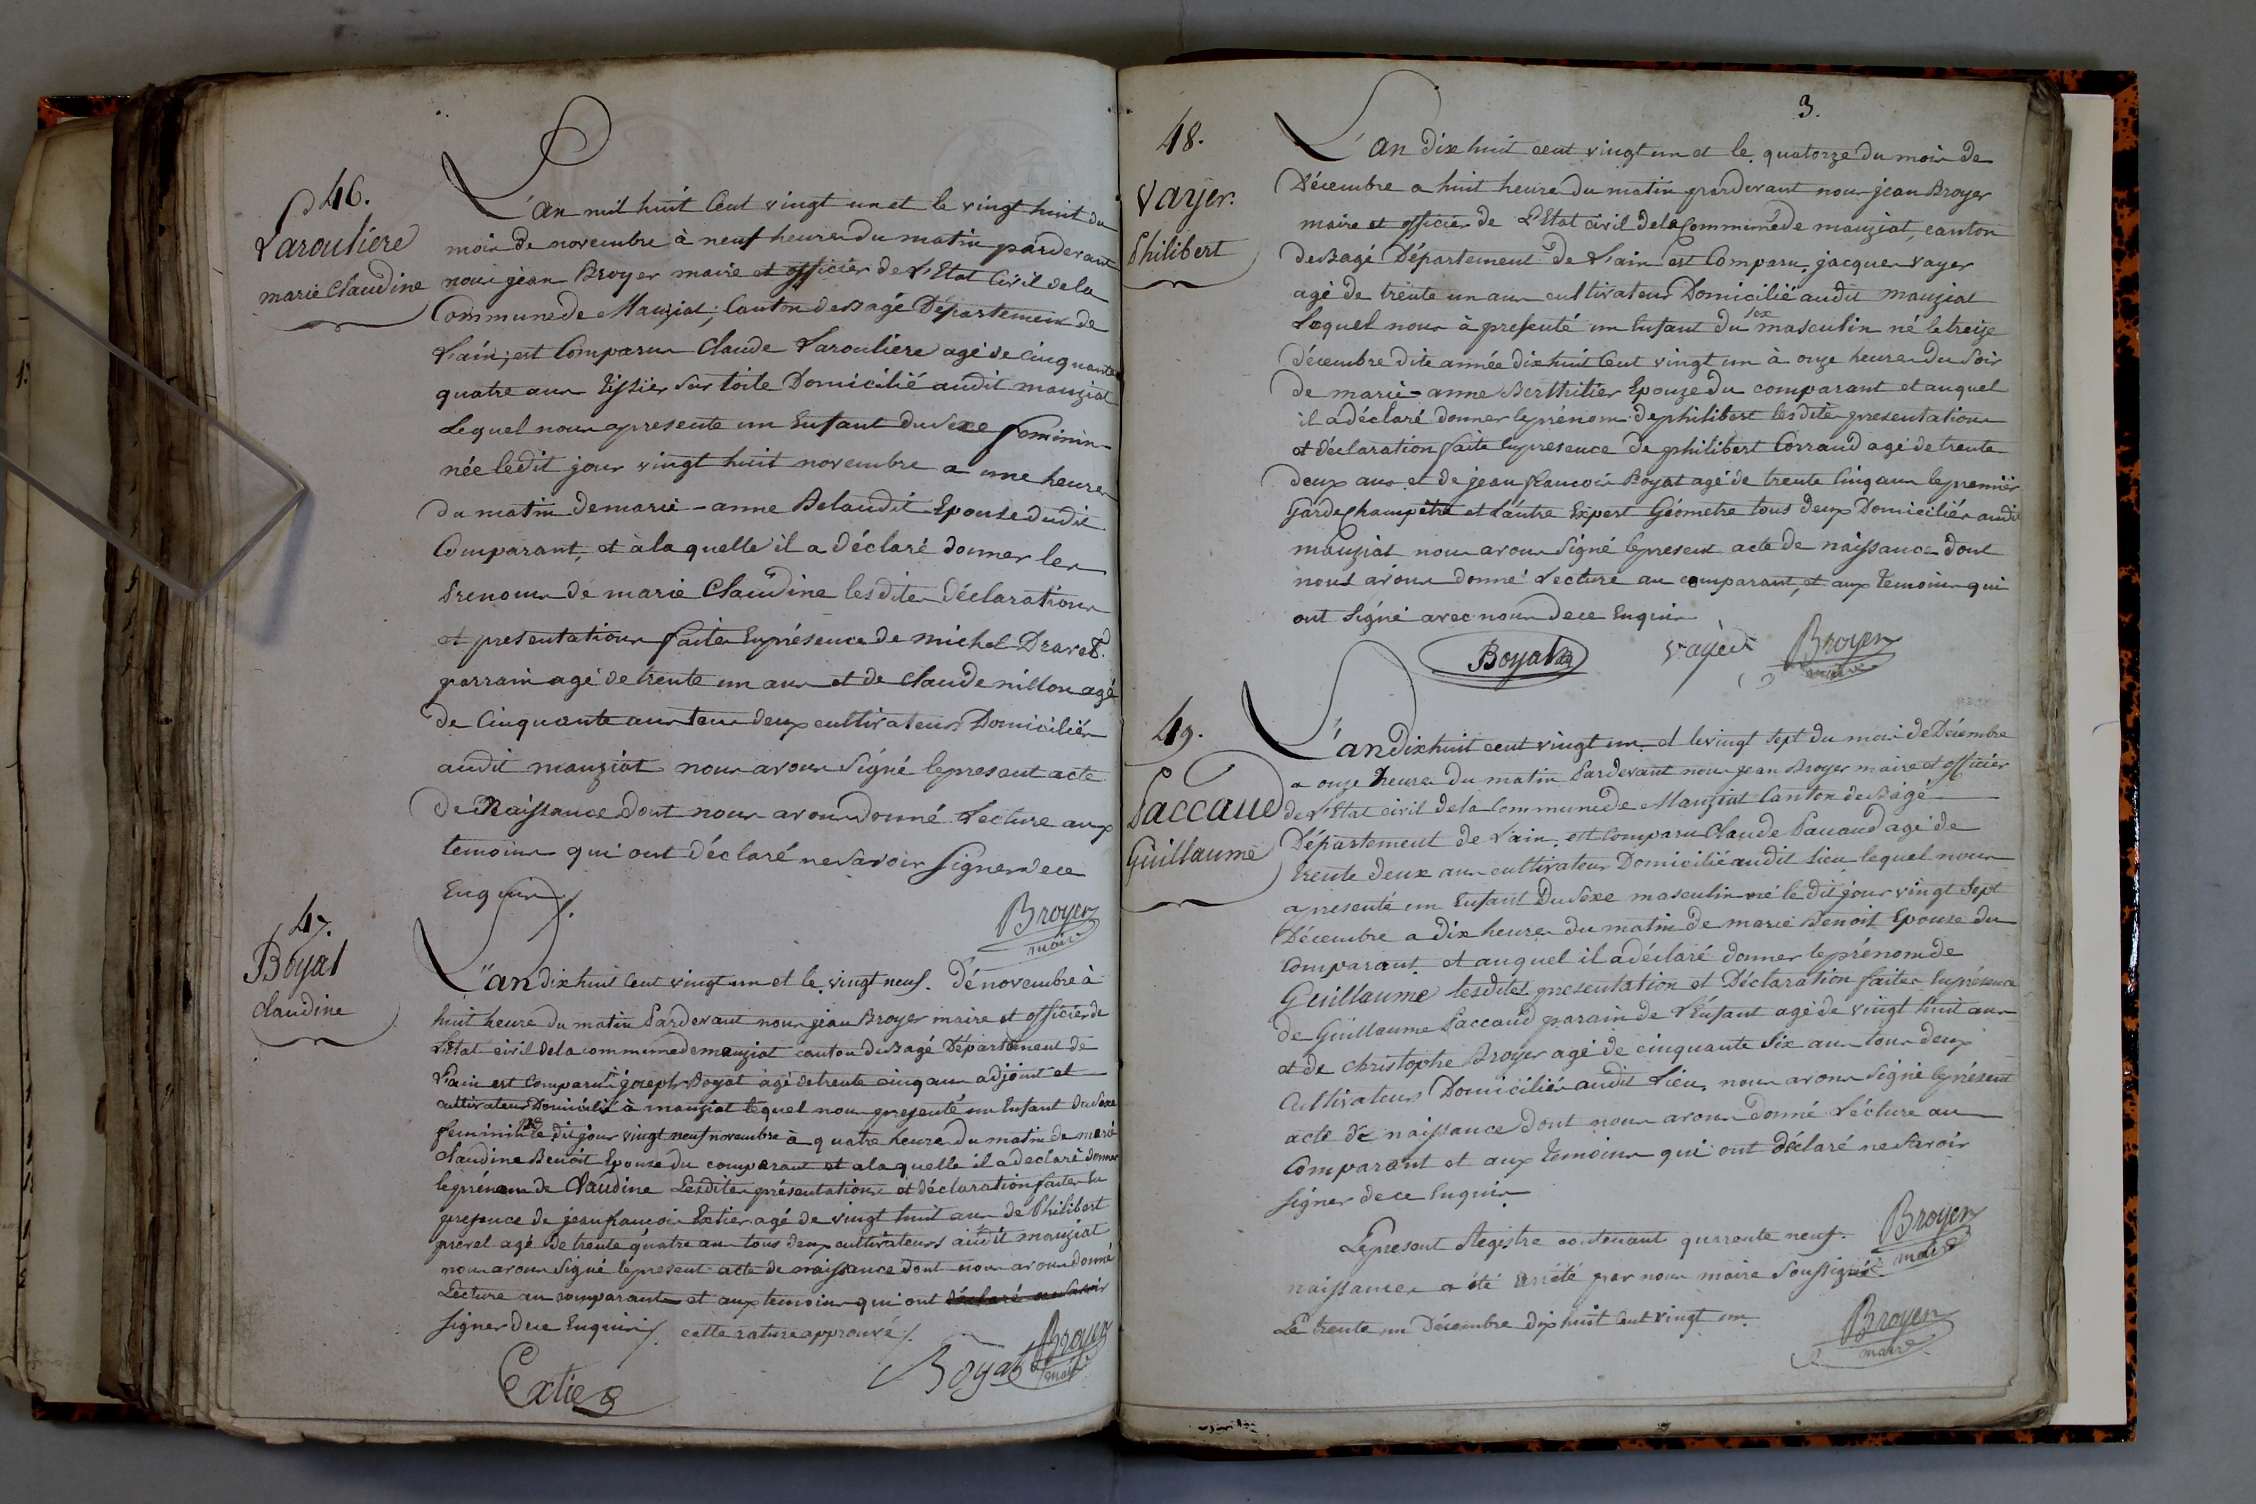 46.
Laroulière
marie Claudine
L'an mil huit Cent vingt un et le vingt huit du
mois de novembre à neuf heures du matin pardevant
nous jean Broyer maire et officier de L'Etat Civil de la
Commune de Manziat; Canton de Bagé Département de
L'ain; est Comparu Claude Laroulière agé de Cinquante
quatre ans Tissier sur toile Domicilié audit manziat
Lequel nous a presenté un Enfant du Sexe feminin
née ledit jour vingt huit novembre a une heure
du matin de marie-anne Belaudit Epouse dudit
Comparant, et à laquelle il a déclaré donner les
Prenoms de marie Claudine lesdites déclarations
et presentations faites En présence de michel Dravet
parrain agé de trente un ans et de Claude nillon agé
de Cinquante ans tous deux cultivateurs Domiciliés
audit manziat nous avons Signé le present acte
de Naissance Dont nous avons donné Lecture aux
temoins qui ont déclaré ne Savoir Signer de ce
Enquis
Broyer
maire
47.
Boyat
Claudine
L'an dix huit Cent vingt un et le vingt neuf. Dé novembre à
huit heure du matin Pardevant nous jean Broyer maire et officier de
L'Etat civil de la commune de manziat canton de Bagé Département de
L'ain est Comparu joseph Boyat agé de trente cinq ans adjoint et
cultivateur Domicilié à manziat lequel nous presenté un Enfant du Sexe
feminin née le dit jour vingt neuf novembre à quatre heure du matin de marie
Claudine Benoit Epouse du comparant et a laquelle il a declaré donner
le prénom de Claudine Lesdites présentations et déclaration faites En
presence de jean francois Extier agé de vingt huit ans de Philibert
prevel agé de trente quatre ans tous deux cultivateurs audit manziat
nous avons Signé le present acte de naissance dont nous avons donné
Lecture au comparant et aux temoins qui ont déclaré ne Savoir
Signer de ce Enquis /. cette rature approuvé /.
Extier
Boyat
Broyer
maire
3.
48.
Vayer.
Philibert
L'an dix huit cent vingt un et le quatorze du mois de
Décembre a huit heure du matin pardevant nous jean Broyer
maire et officier de L'Etat civil de la Commune de manziat, canton
de Bagé Département de L'ain est Comparu, jacques vayer
agé de trente un ans cultivateur Domicilié audit manziat
Lequel nous à presenté un Enfant du sex masculin né le treize
décembre dite année dix huit Cent vingt un à onze heures du Soir
de marie-anne Berthilier Epouze du comparant et auquel
il a déclaré donner le prénom de philibert les dites presentations
et déclaration faite En presence de philibert Corraud agé de trente
deux ans et de jean francois Boyat agé de trente Cinq ans le premier
Garde Champêtre et L'autre Expert Géometre tous deux Domiciliés audit
manziat nous avons Signé le present acte de naissance dont
nous avons donné Lecture au comparant, et aux Temoins qui
ont Signé avec nous de ce Enquis
Boyat
Vayer
Broyer
maire
49.
Paccaud
Guillaume
L'an dix huit cent vingt un. et le vingt Sept du mois de Décembre
a onze heure du matin Pardevant nous jean Broyer maire et officier
de L'Etat civil de la Commune de Manziat Canton de Bagé
Département de L'ain, est Comparu Claude Paccaud agé de
trente deux ans cultivateur Domicilié audit Lieu lequel nous
a présenté un Enfant Du Sexe masculin né le dit jour vingt Sept
Décembre a dix heures du matin de marie Benoit Epouse du
Comparant, et auquel il a déclaré donner le prénom de
Guillaume lesdites presentation et Déclaration faites En présence
de Guillaume Paccaud parain de L'Enfant agé de vingt huit ans
et de Christophe Broyer agé de cinquante Six ans tous deux
Cultivateurs Domiciliés audit Lieu, nous avons Signé le présent
acte de naissance dont nous avons donné Lécture au
Comparant et aux Temoins qui ont déclaré ne Savoir
Signer de ce Enquis
Broyer
maire
Le present Registre contenant quarante neuf
naissances a été arrété par nous maire Soussigné
Le trente un Décembre dix huit Cent vingt un
Broyer
maire